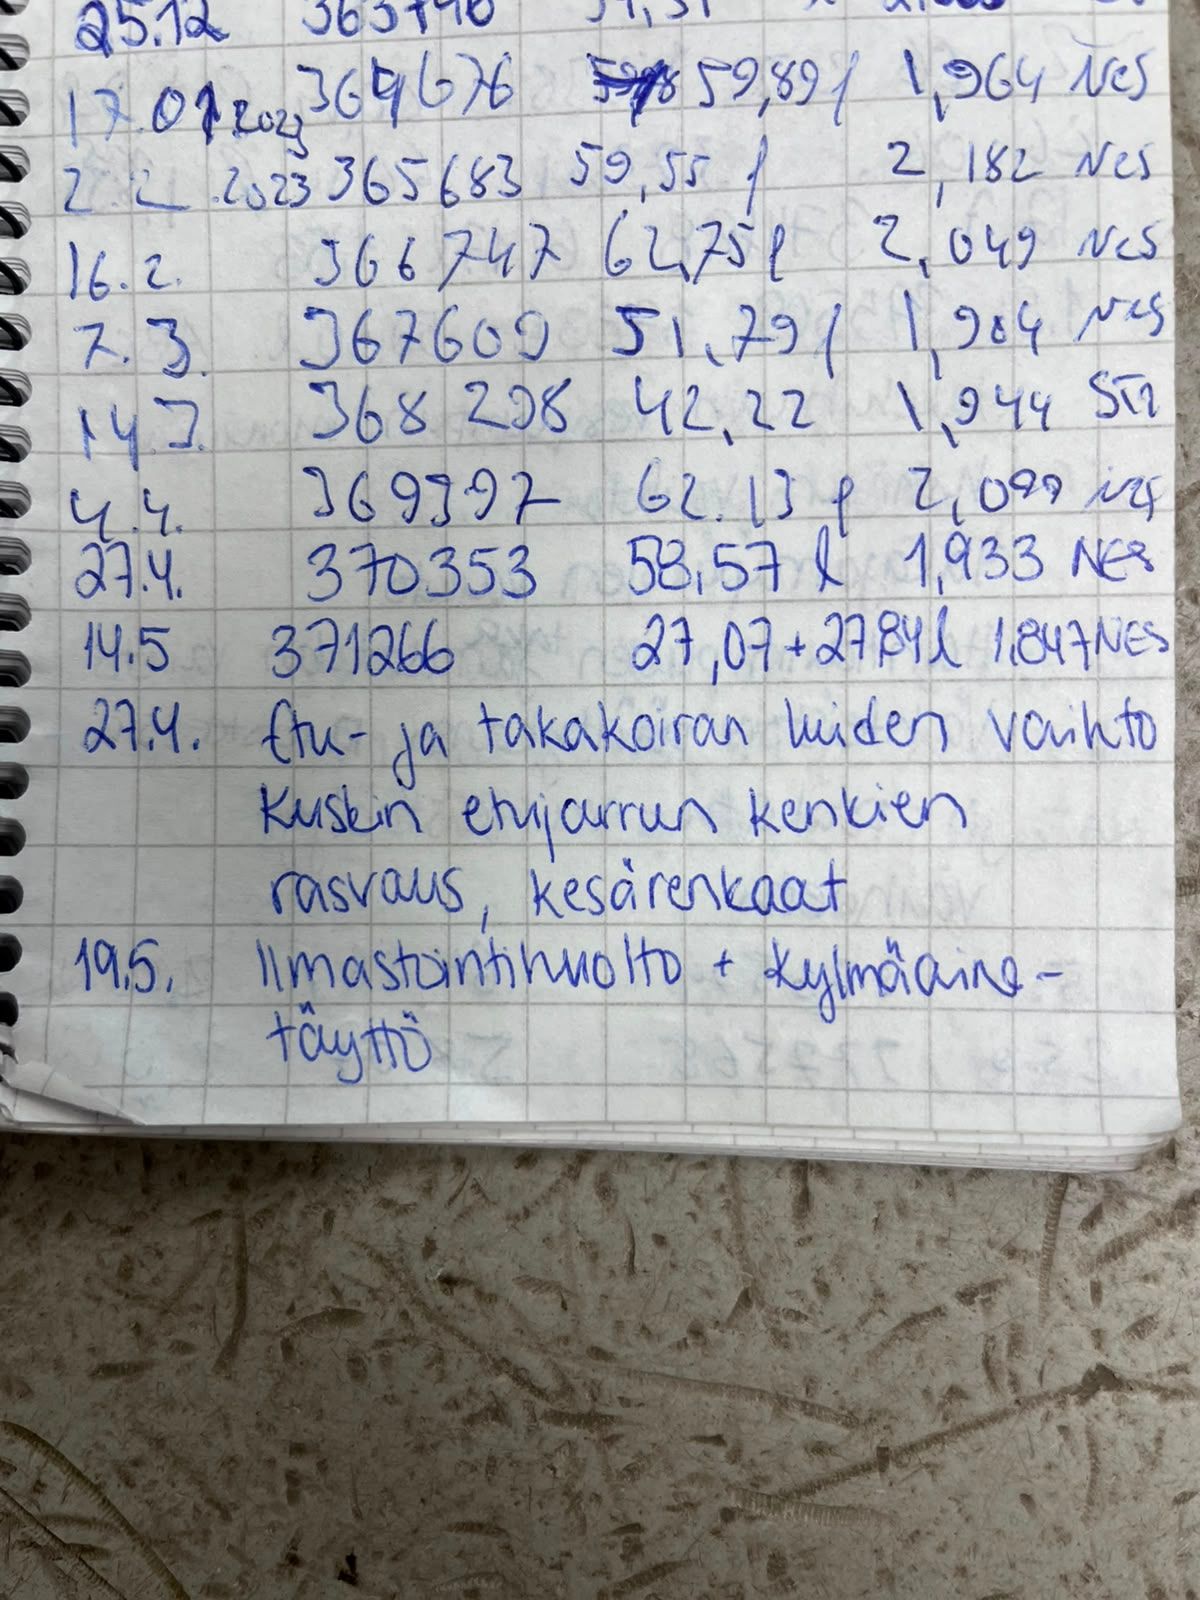 25.12 363740
17.01.2023 364676 59,89 l 1,964 NES
2.2.2023 365683 59,55 l 2,182 NES
16.2. 366747 62,75 l 2,049 NES
7.3. 367609 51,79 l 1,904 NES
14.3. 368298 42,22 1,944 ST1
4.4. 369397 62.13 l 2,099 NES
27.4. 370353 58,57 l 1,933 NES
14.5 371266 27,07+27,84 l 1.847 NES
27.4. Etu- ja takakoiran luiden vaihto
Kuskin etujarrun kenkien
rasvaus, kesärenkaat
19.5. Ilmastointihuolto + kylmäaine-
täyttö